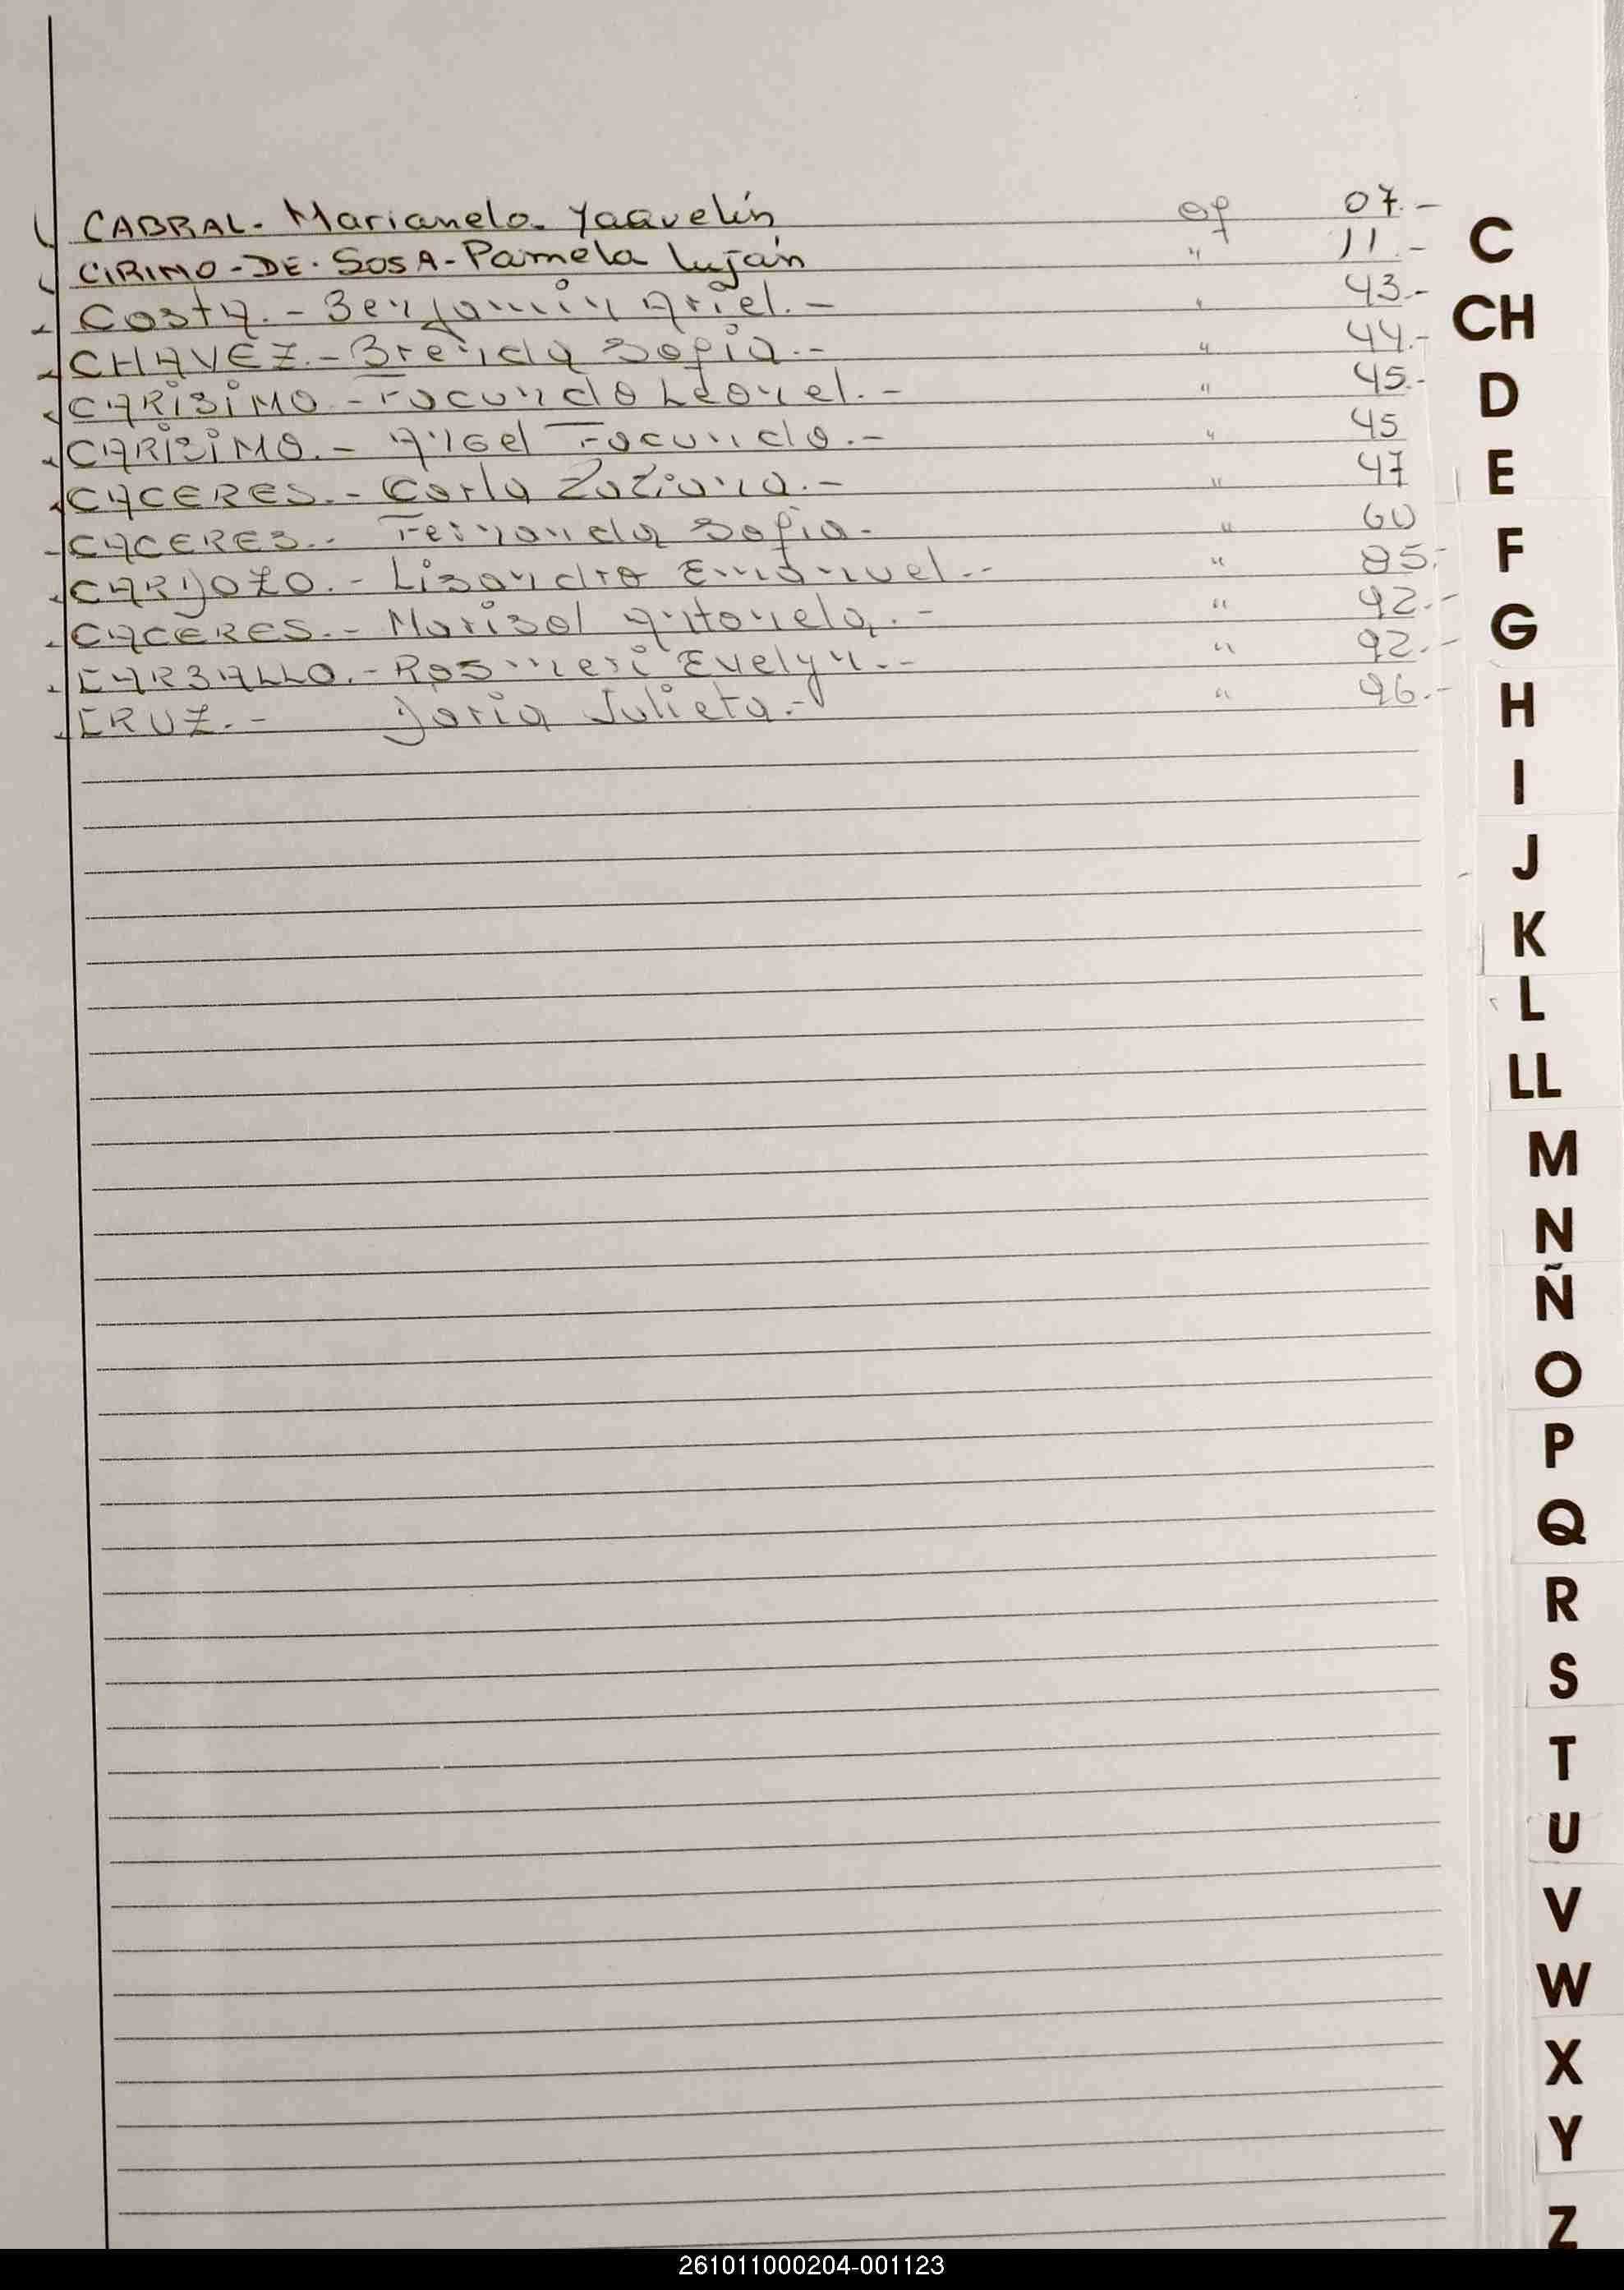 CABRAL. Marianela. Yaquelín of 07.-
CIRIMO-DE-SOSA-Pamela Luján " 11.-
Costa.- Benjamin Ariel.- " 43.-
CHAVEZ.- Brenda Sofia.- " 44.-
CARISIMO.- Facundo Leonel.- " 45.-
CARISIMO.- Angel Facundo.- " 45
CACERES.- Carla " 47
CACERES.- Fernanda Sofia.- " 60
CARDOZO.- Lisandro Emanuel.- " 85.-
CACERES.- Marisol Antonela.- " 92.-
CARBALLO.- Rosmeri Evelyn.- " 92.-
CRUZ.- Daria Julieta.- " 96.-
C
CH
D
E
F
G
H
I
J
K
L
LL
M
N
Ñ
O
P
Q
R
S
T
U
V
W
X
Y
Z
261011000204-001123